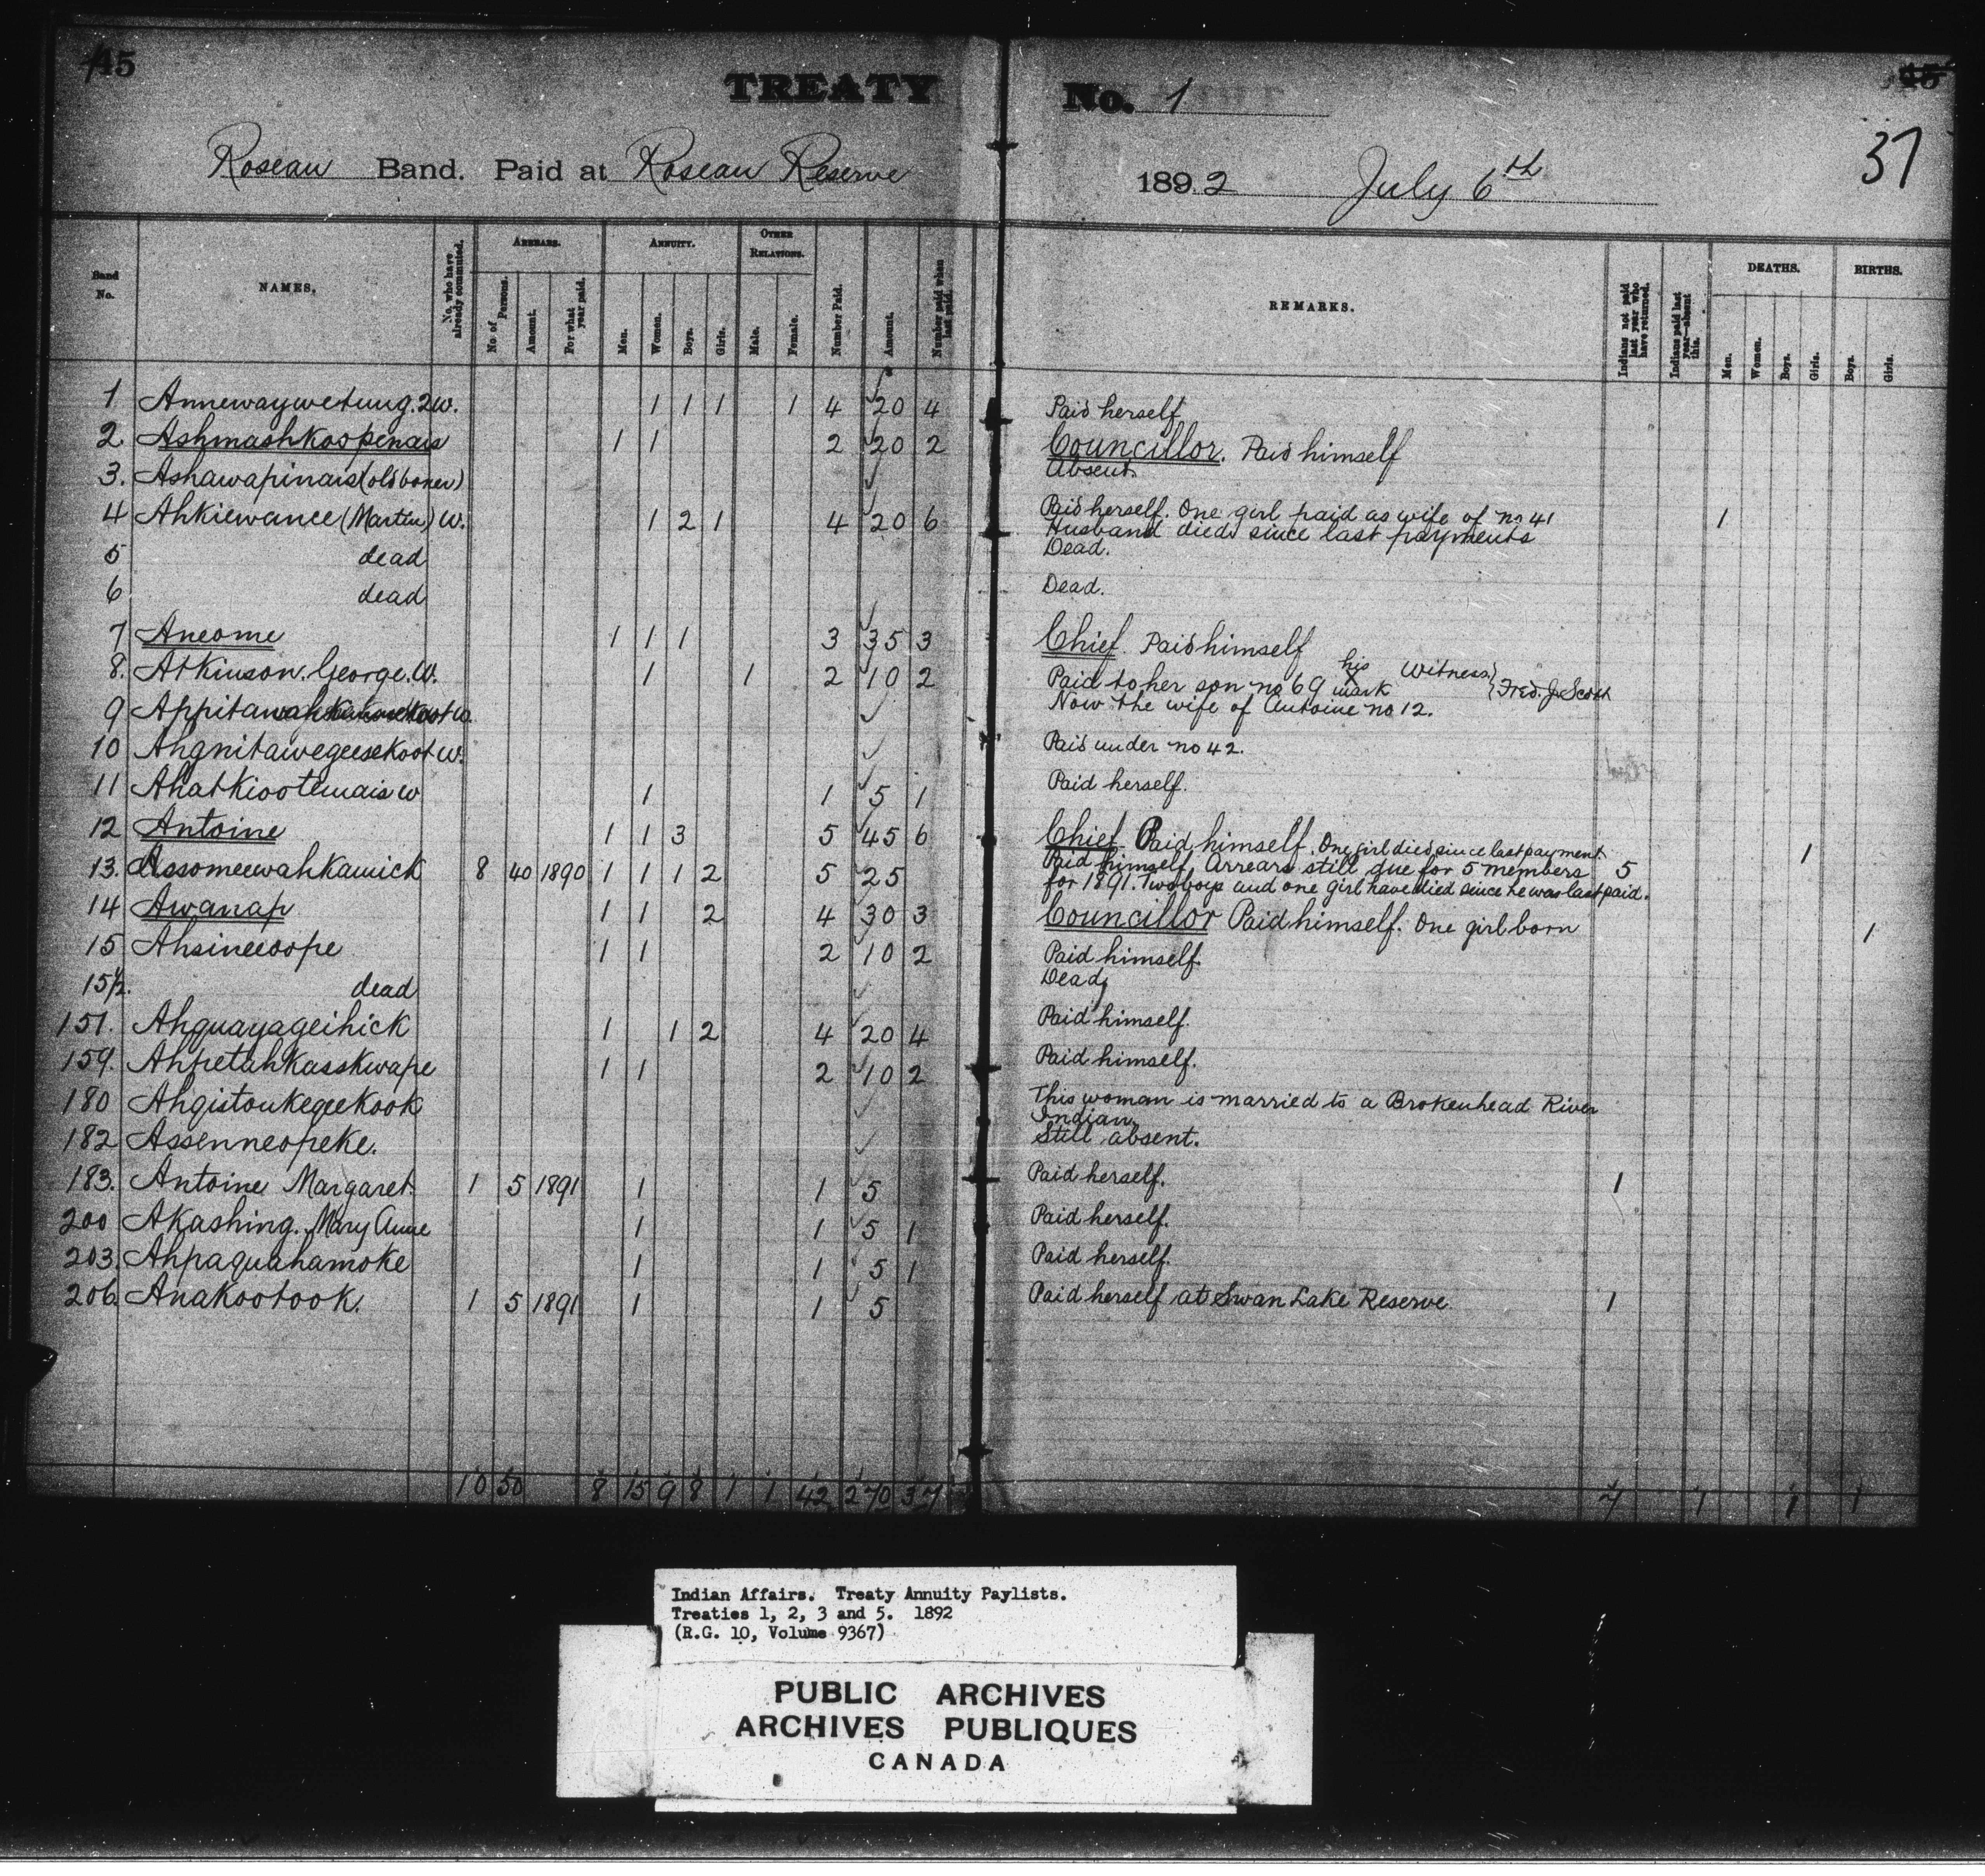 45
TREATY No. 1
45
37
Roseau Band. Paid at Roseau Reserve 1892 July 6th
Band No. NAMES. No. who have already commuted. ARREARS. No. of Persons. Amount. For what year paid. ANNUITY. Men. Women. Boys. Girls. OTHER RELATIONS. Male. Female. Number Paid. Amount. Number paid when last paid. REMARKS. Indians not paid last year who have returned. Indians paid last year—absent this. DEATHS. Men. Women. Boys. Girls. BIRTHS. Boys. Girls.
1 Annewaywetung. 2W. 1 1 1 1 4 20 4 Paid herself
2. Ashmashkoopenais 1 1 2 20 2 Councillor. Paid himself
3. Ashawapinais (old bones) Absent.
4 Ahkiewance (Martin) W. 1 2 1 4 20 6 Paid herself. One girl paid as wife of no 41 1
Husband died since last payments
5 dead Dead.
6 dead Dead.
7 Aneome 1 1 1 3 35 3 Chief. Paid himself
8. Atkinson. George. W. 1 1 2 10 2 Paid to her son no 69 his X mark Witness Fred. J. Scott
9 Now the wife of Antoine no 12.
10 Ahgnitawegeesekoot W. Paid under no 42.
11 Ahatkiootemais W 1 1 5 1 Paid herself.
12 Antoine 1 1 3 5 45 6 Chief Paid himself. One girl died since last payment 1
13. Assomeewahkamick 8 40 1890 1 1 1 2 5 25 Paid himself. Arrears still due for 5 members 5
for 1891. Two boys and one girl have died since he was last paid.
14 Awanap 1 1 2 4 30 3 Councillor Paid himself. One girl born 1
15 Ahsineeoope 1 1 2 10 2 Paid himself.
15½. dead Dead
151. Ahguayageihick 1 1 2 4 20 4 Paid himself.
159. Ahpetahkasskwape 1 1 2 10 2 Paid himself.
180 Ahgistoukegeekook This woman is married to a Brokenhead River
Indian.
182 Assenneopeke. Still absent.
183. Antoine Margaret. 1 5 1891 1 1 5 Paid herself. 1
200 Akashing. Mary Anne 1 1 5 1 Paid herself.
203. Ahpaguahamoke 1 1 5 1 Paid herself.
206. Anakootook. 1 5 1891 1 1 5 Paid herself at Swan Lake Reserve 1
10 50 8 15 9 8 1 1 42 270 37 7 1 1 1
Indian Affairs. Treaty Annuity Paylists.
Treaties 1, 2, 3 and 5. 1892
(R.G. 10, Volume 9367)
PUBLIC ARCHIVES
ARCHIVES PUBLIQUES
CANADA